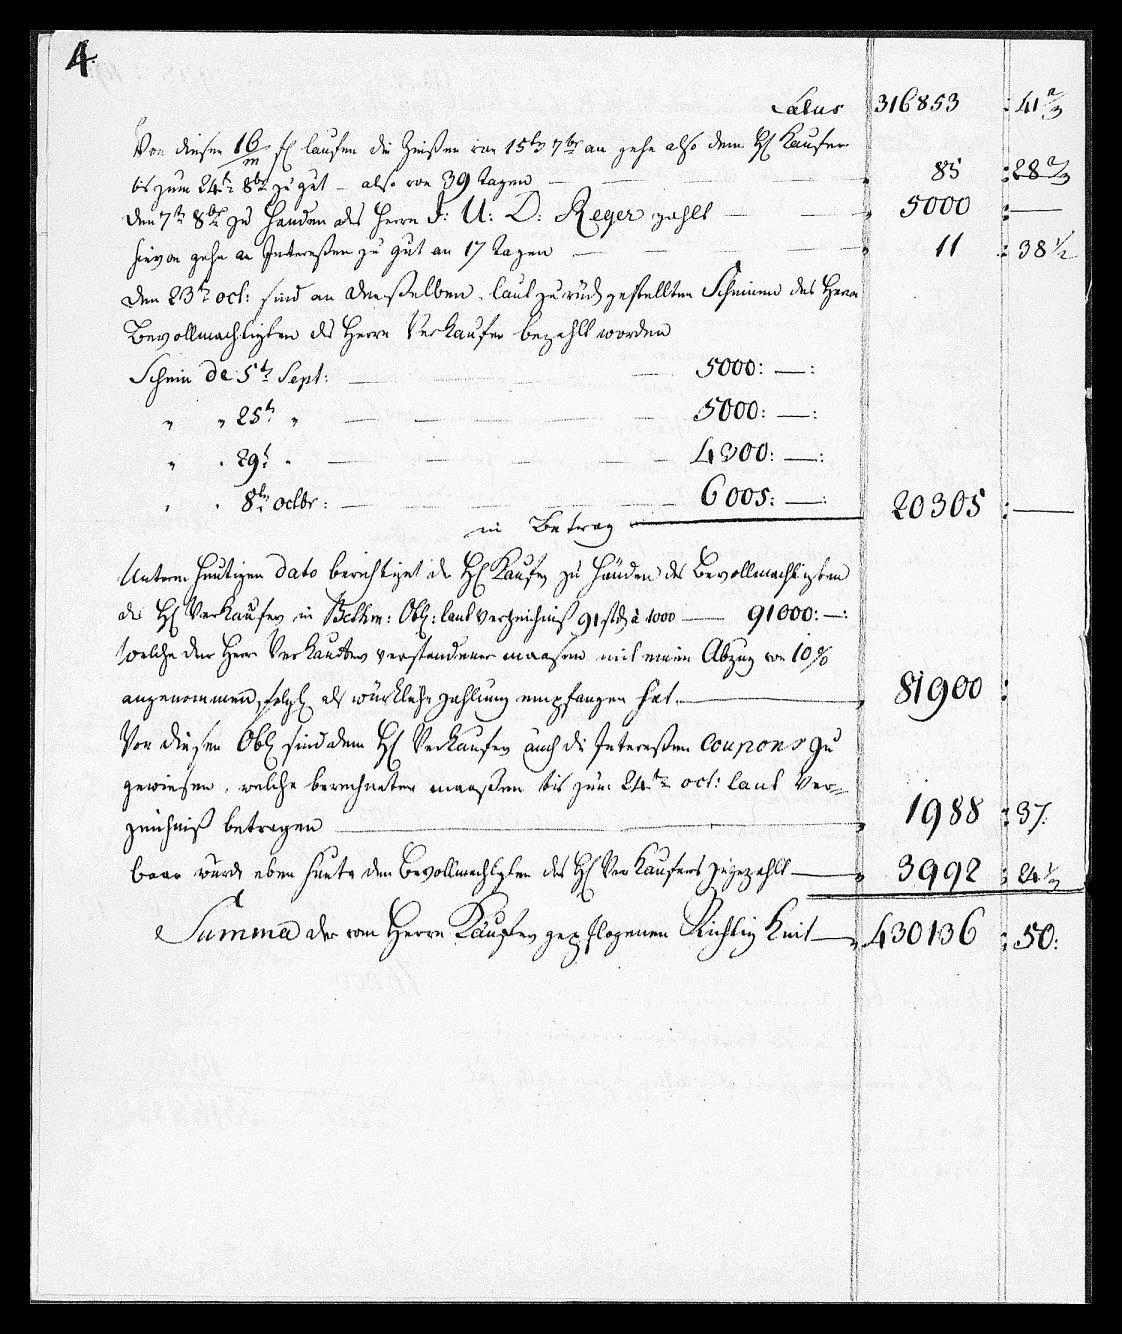 4.
Latus 316853 : 41 2/3
Von diesen 16/m fl laufen die Zinßen von 15ten 7br an gehn also dem H Kaufer
bis zum 24t 8br zu gut – also von 39 Tagen — 85 : 28 2/3
den 7t 8br zu Handen des Herrn J: U: D: Reger zahlt — 5000 : —
hievon gehn an Intereßen zu gut an 17 Tagen — 11 : 38 1/2
den 23t oct: sind an denselben, laut zurück gestellten Scheinen des Herrn
Bevollmachtigten des Herrn Verkaufer bezahlt worden
Schein de 5t Sept: — 5000: —:
" " 25t " — 5000: —:
" " 29t " — 4300: —:
" " 8ten octbr: — 6005: —:
in Betrag — 20305 : —
Unterm heutigen dato berichtiget der H Kaufer zu Handen des Bevollmachtigten
des H Verkaufer in Bethm: Obl: laut Verzeichniß 91 stk à 1000 — 91000: —:
welche der Herr Verkaufer verstandener maasen mit einem Abzug von 10%
angenommen, folgl als würkliche zahlung empfangen hat. — 81900 :
Von diesen Obl sind dem H Verkaufer auch die Intereßen Coupons zu
gewiesen, welche berechneter maaßen bis zum 24t oct: laut Ver=
zeichniß betragen — 1988 : 37.
baar wurde eben heute den Bevollmachtigten des H Verkaufers zugezahlt — 3992 : 24 1/2
Summa der vom Herrn Käufer gepflogenen Richtigkeit — 430136 : 50: